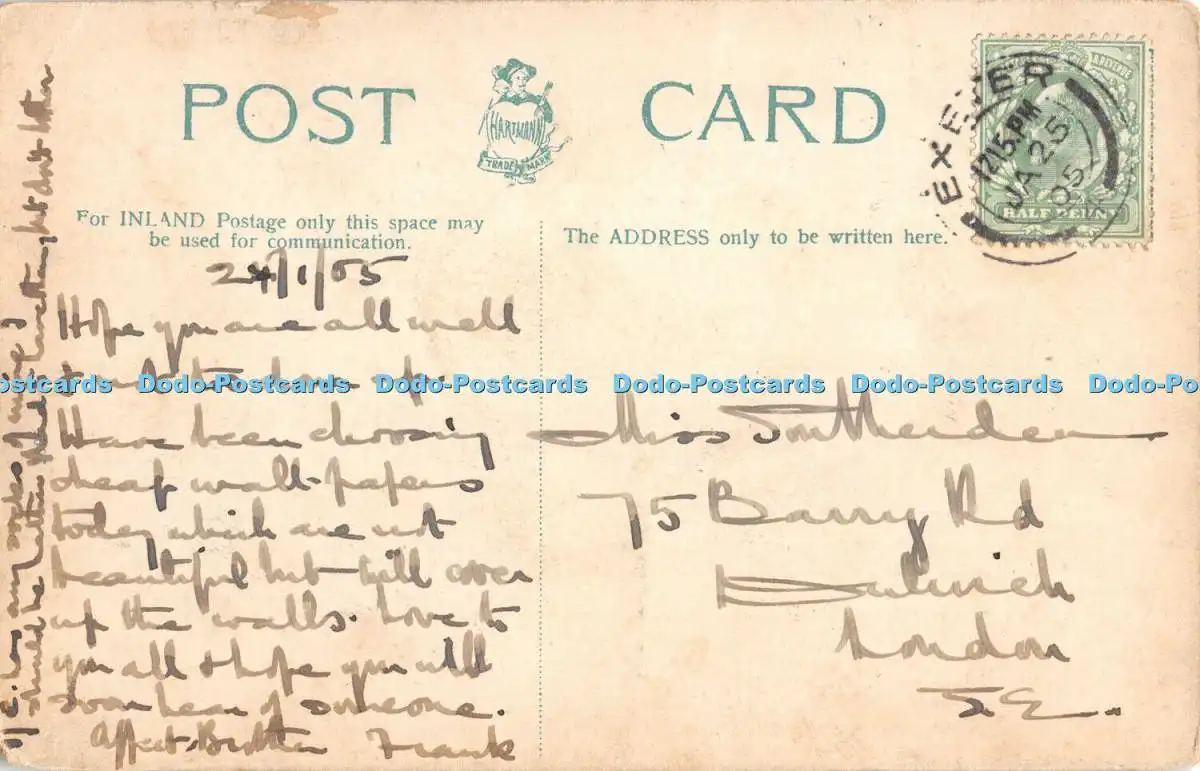 POST CARD
HARTMANN
TRADE MARK
EXETER
12.15.PM
JA 25
05
HALF PENNY
For INLAND Postage only this space may
be used for communication.
The ADDRESS only to be written here.
24/1/05
Hope you are all well
Have been choosing
cheap wall-papers
today which are not
beautiful but will cover
up the walls. Love to
you all & hope you will
soon hear of someone.
Affect. Brother Frank
If E. has any
should be
but don't bother
Miss Southerden
75 Barry Rd
Dulwich
London
S.E.
Dodo-Postcards Dodo-Postcards Dodo-Postcards Dodo-Postcards Dodo-Postcards